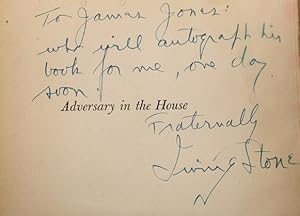 To James Jones:
who will autograph his
book for me, one day
soon!
Adversary in the House
Fraternally
Irving Stone